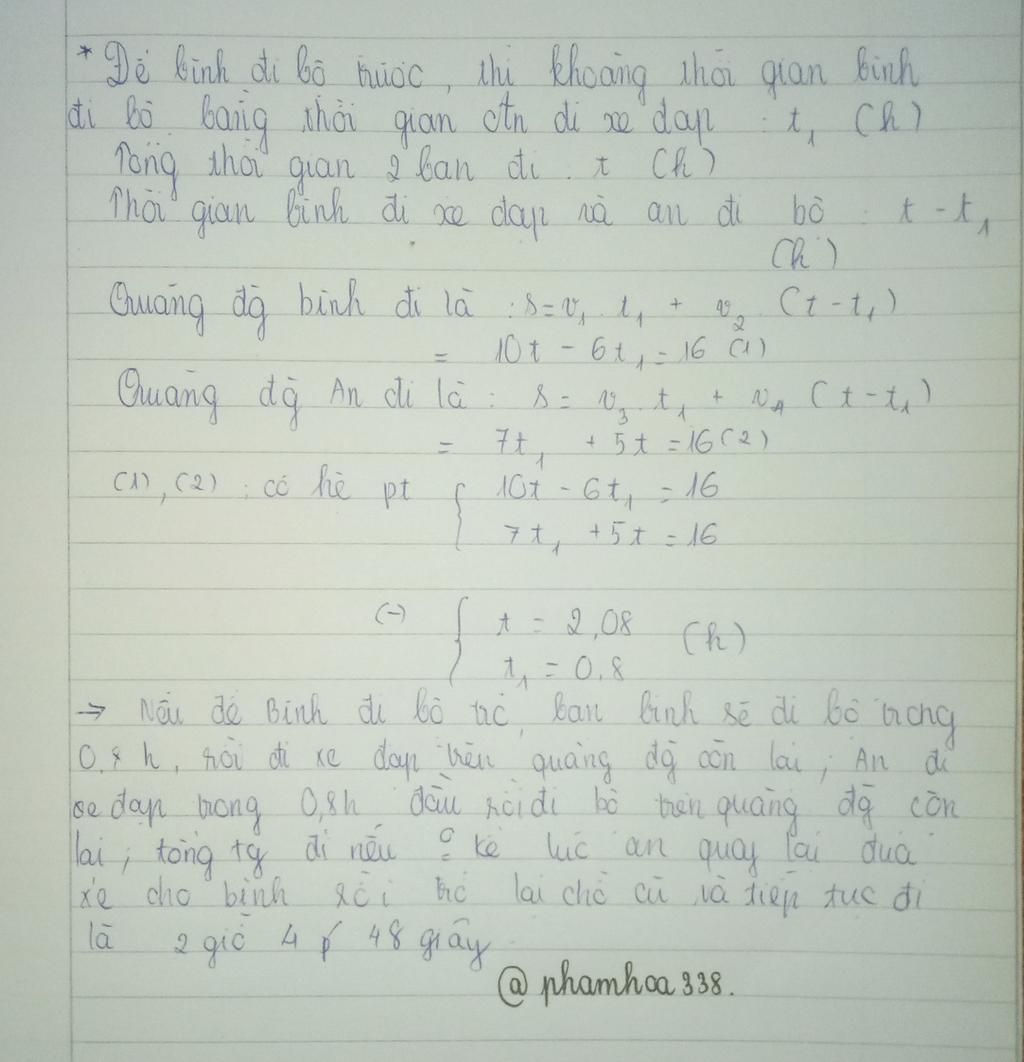 * Để bình đi bộ trước, thì khoảng thời gian bình
đi bộ bằng thời gian An đi xe đạp : t₁ (h)
Tổng thời gian 2 bạn đi : t (h)
Thời gian bình đi xe đạp và an đi bộ : t - t₁
(h)
Quãng đg̀ bình đi là : s = v₁. t₁ + v₂ (t - t₁)
= 10t - 6t₁ = 16 (1)
Quãng đg̀ An đi là : s = v₃. t₁ + v₄ (t - t₁)
= 7t₁ + 5t = 16 (2)
(1), (2) : có hệ pt { 10t - 6t₁ = 16
7t₁ + 5t = 16
(-) { t = 2,08 (h)
t₁ = 0,8
→ Nếu để Bình đi bộ trc, bạn bình sẽ đi bộ trong
0,8 h, rồi đi xe đạp trên quãng đg̀ còn lại; An đi
xe đạp trong 0,8h đầu rồi đi bộ trên quãng đg̀ còn
lại; tổng tg đi nếu kể lúc an quay lại đưa
xe cho bình rồi trở lại chỗ cũ và tiếp tục đi
là 2 giờ 4 p 48 giây
@phamhoa338.